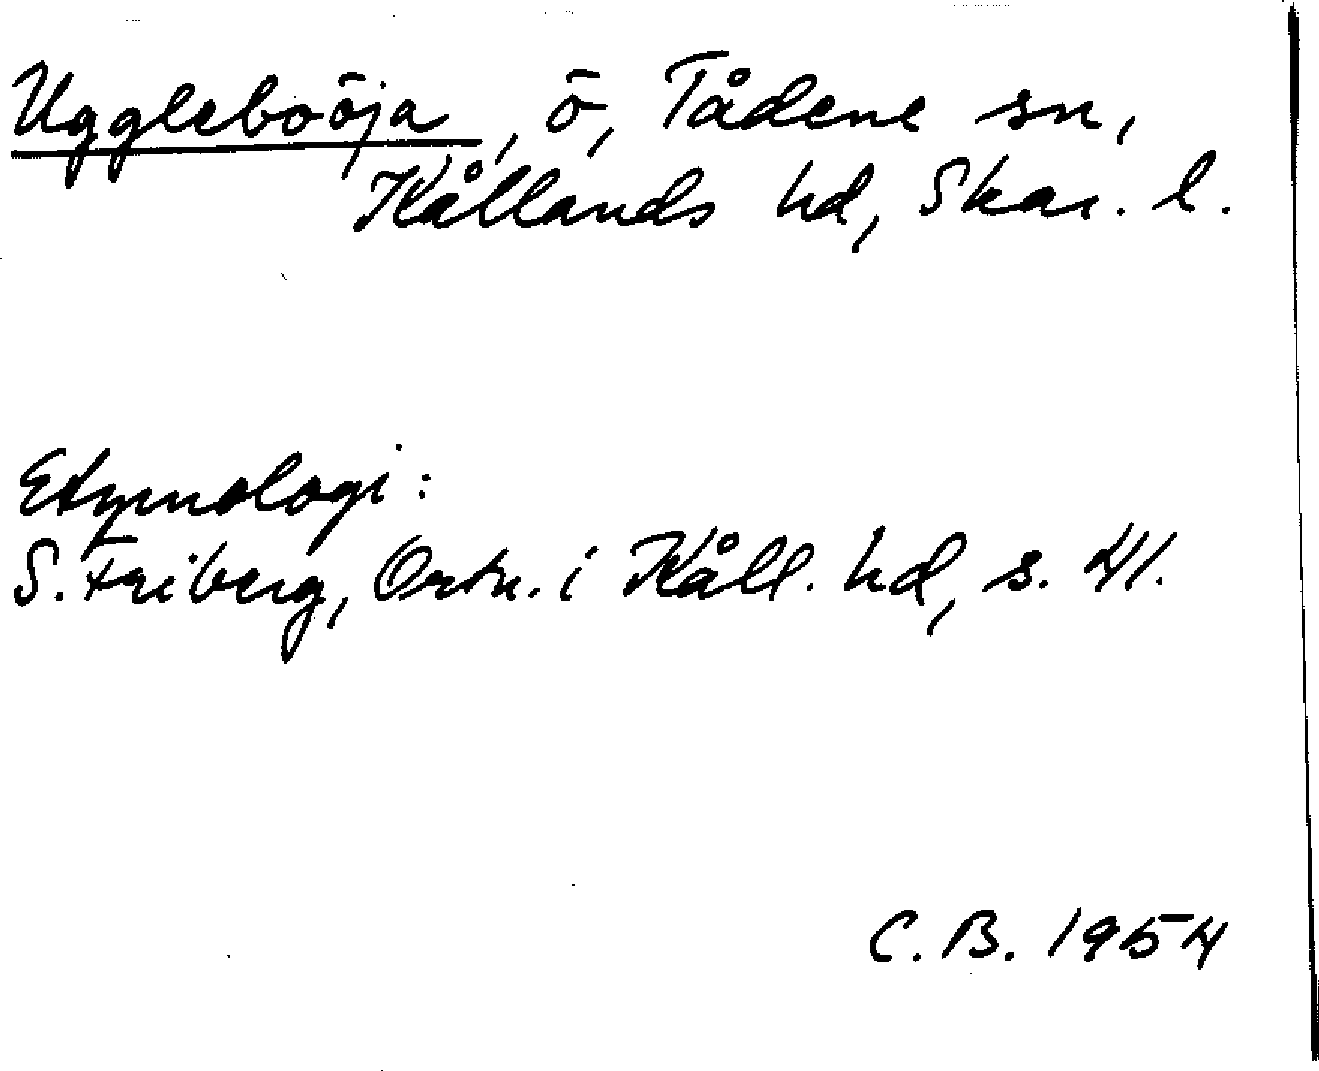 Uggleboöja, ö, Tådene sn,
Kållands hd, Skar. l.
Etymologi:
S. Friberg, Ortn. i Kåll. hd, s. 41.
C. B. 1954